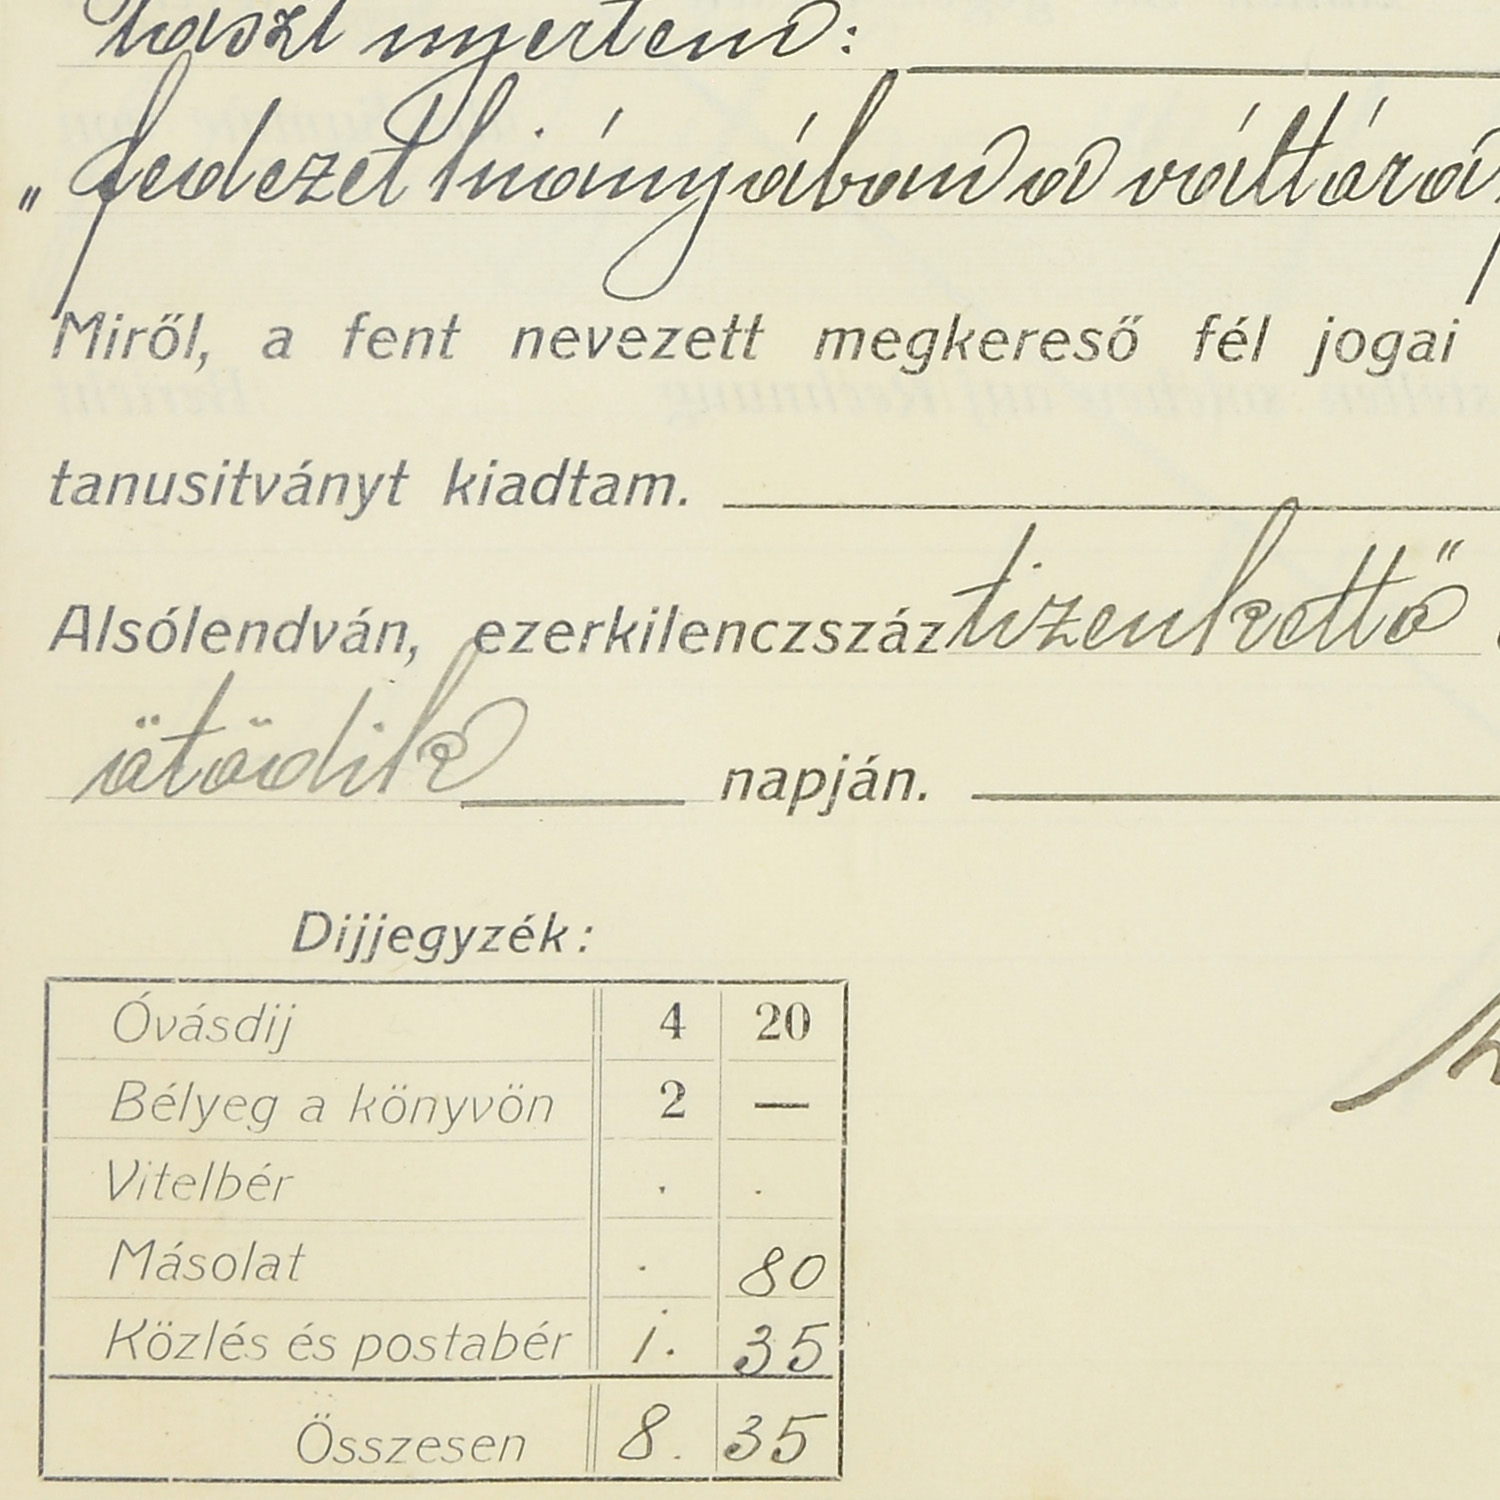 taszt nyertem:
"fedezet hiányában a váltó
Miről, a fent nevezett megkereső fél jogai
tanusitványt kiadtam.
Alsólendván, ezerkilenczszáz tizenkettő
ötödik napján.
Dijjegyzék:
Óvásdij 4 20
Bélyeg a könyvön 2 —
Vitelbér . .
Másolat . 80
Közlés és postabér 1. 35
Összesen 8. 35